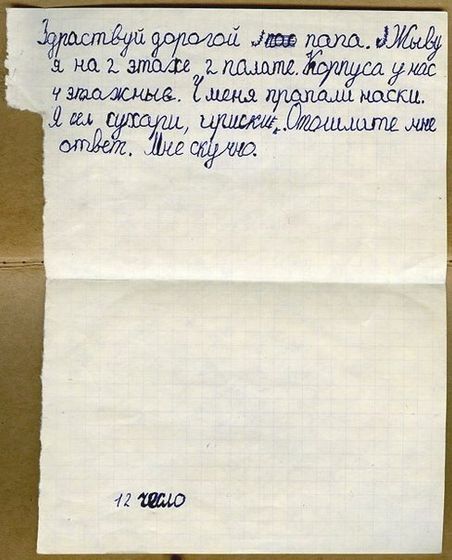 Здраствуй дорогой папа. Жыву
я на 2 этаже 2 палате. Корпуса у нас
4 этажные. У меня прапали наски.
Я ем сухари, ириски. Отошлите мне
ответ. Мне скучно.
12 число